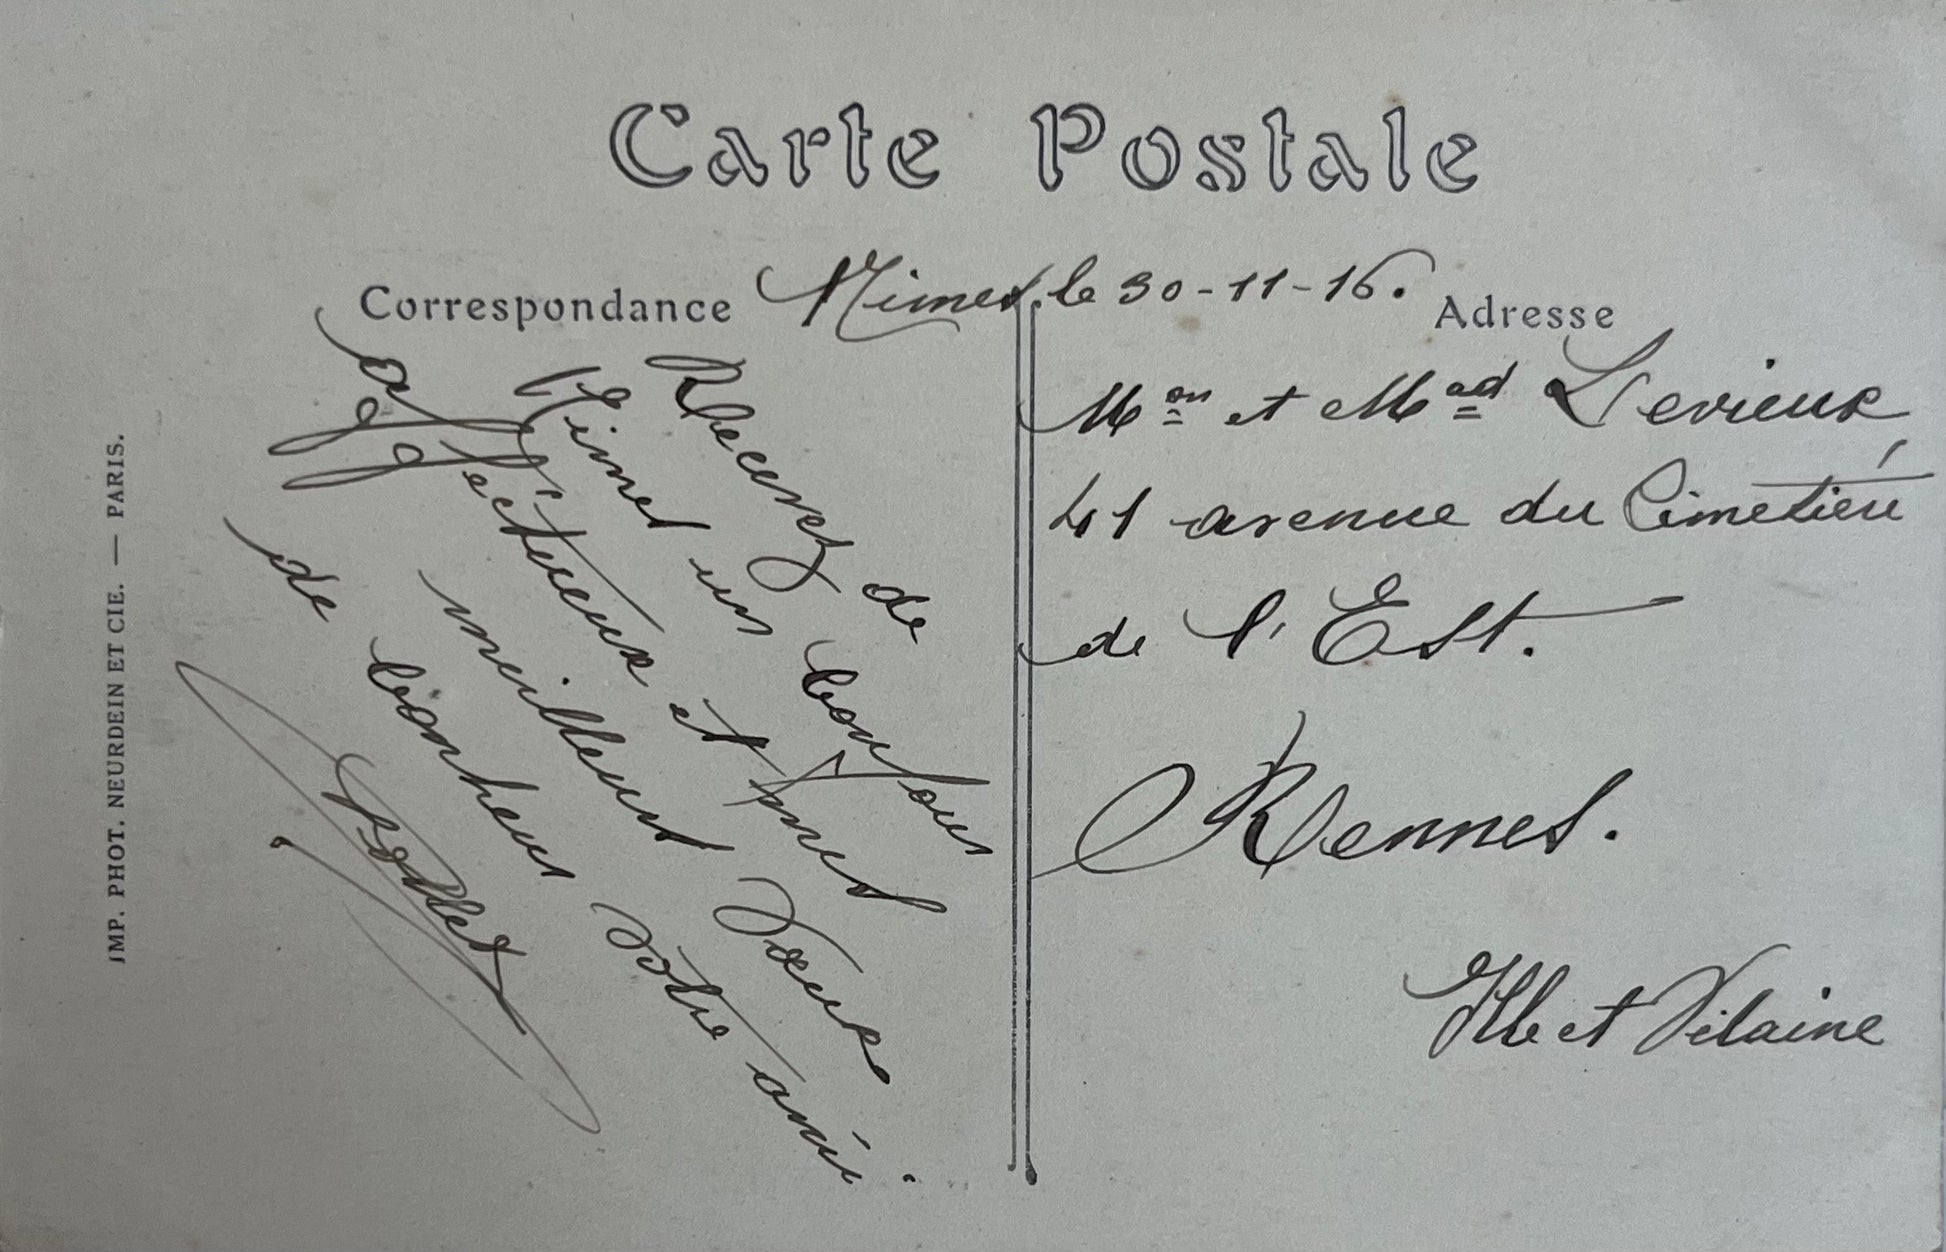 Carte Postale
Correspondance
Nimes, le 30-11-16.
Adresse
Recevez de
Nimes un bonjour
affectueux et mes
meilleurs vœux
de bonheur votre ami.
Mon et Mad Levieux
41 avenue du Cimetière
de l'Est.
Rennes.
Ille et Vilaine
IMP. PHOT. NEURDEIN ET CIE. — PARIS.